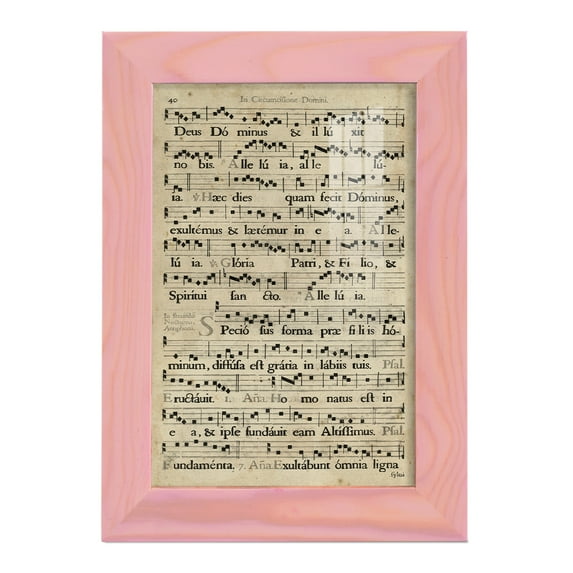 40
In Circumcisione Domini.
Deus Dó minus & il lú xit
no bis. ℣. Alle lú ia, al le lú-
ia. ℣. Hæc dies quam fecit Dóminus,
exultémus & lætémur in e a. ℣. Al le-
lú ia. ℣. Glória Patri, & Fi lio, &
Spirítui san cto. ℣. Alle lú ia.
In secundo
Nocturno,
Antiphona.
S Peció sus forma præ fi li is hó-
minum, diffúsa est grátia in lábiis tuis. Psal.
Eructáuit. 1. Aña. Ho mo natus est in
e a, & ipse fundáuit eam Altíssimus. Psal.
Fundaménta. 7. Aña. Exultábunt ómnia ligna
sylua